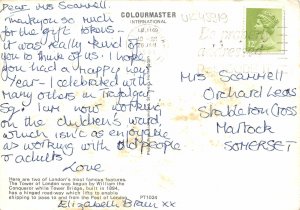 Dear Mrs Scammell,
Thankyou so much
for the gift tokens -
it was really kind of
you to think of us. I hope
you had a happy New
Year - I celebrated like
many others in Trafalgar
Sq! I am now working
on the children's ward,
which isn't as enjoyable
as working with old people
or adults
Love
Elizabeth Braun xx
COLOURMASTER
INTERNATIONAL
Mrs Scammell
Orchard Leas
Stapleton Cross
Martock
SOMERSET
Here are two of London's most famous features.
The Tower of London was begun by William the
Conqueror while Tower Bridge, built in 1894,
has a hinged road-way which lifts to enable
shipping to pass to and from the Port of London.
PT1024